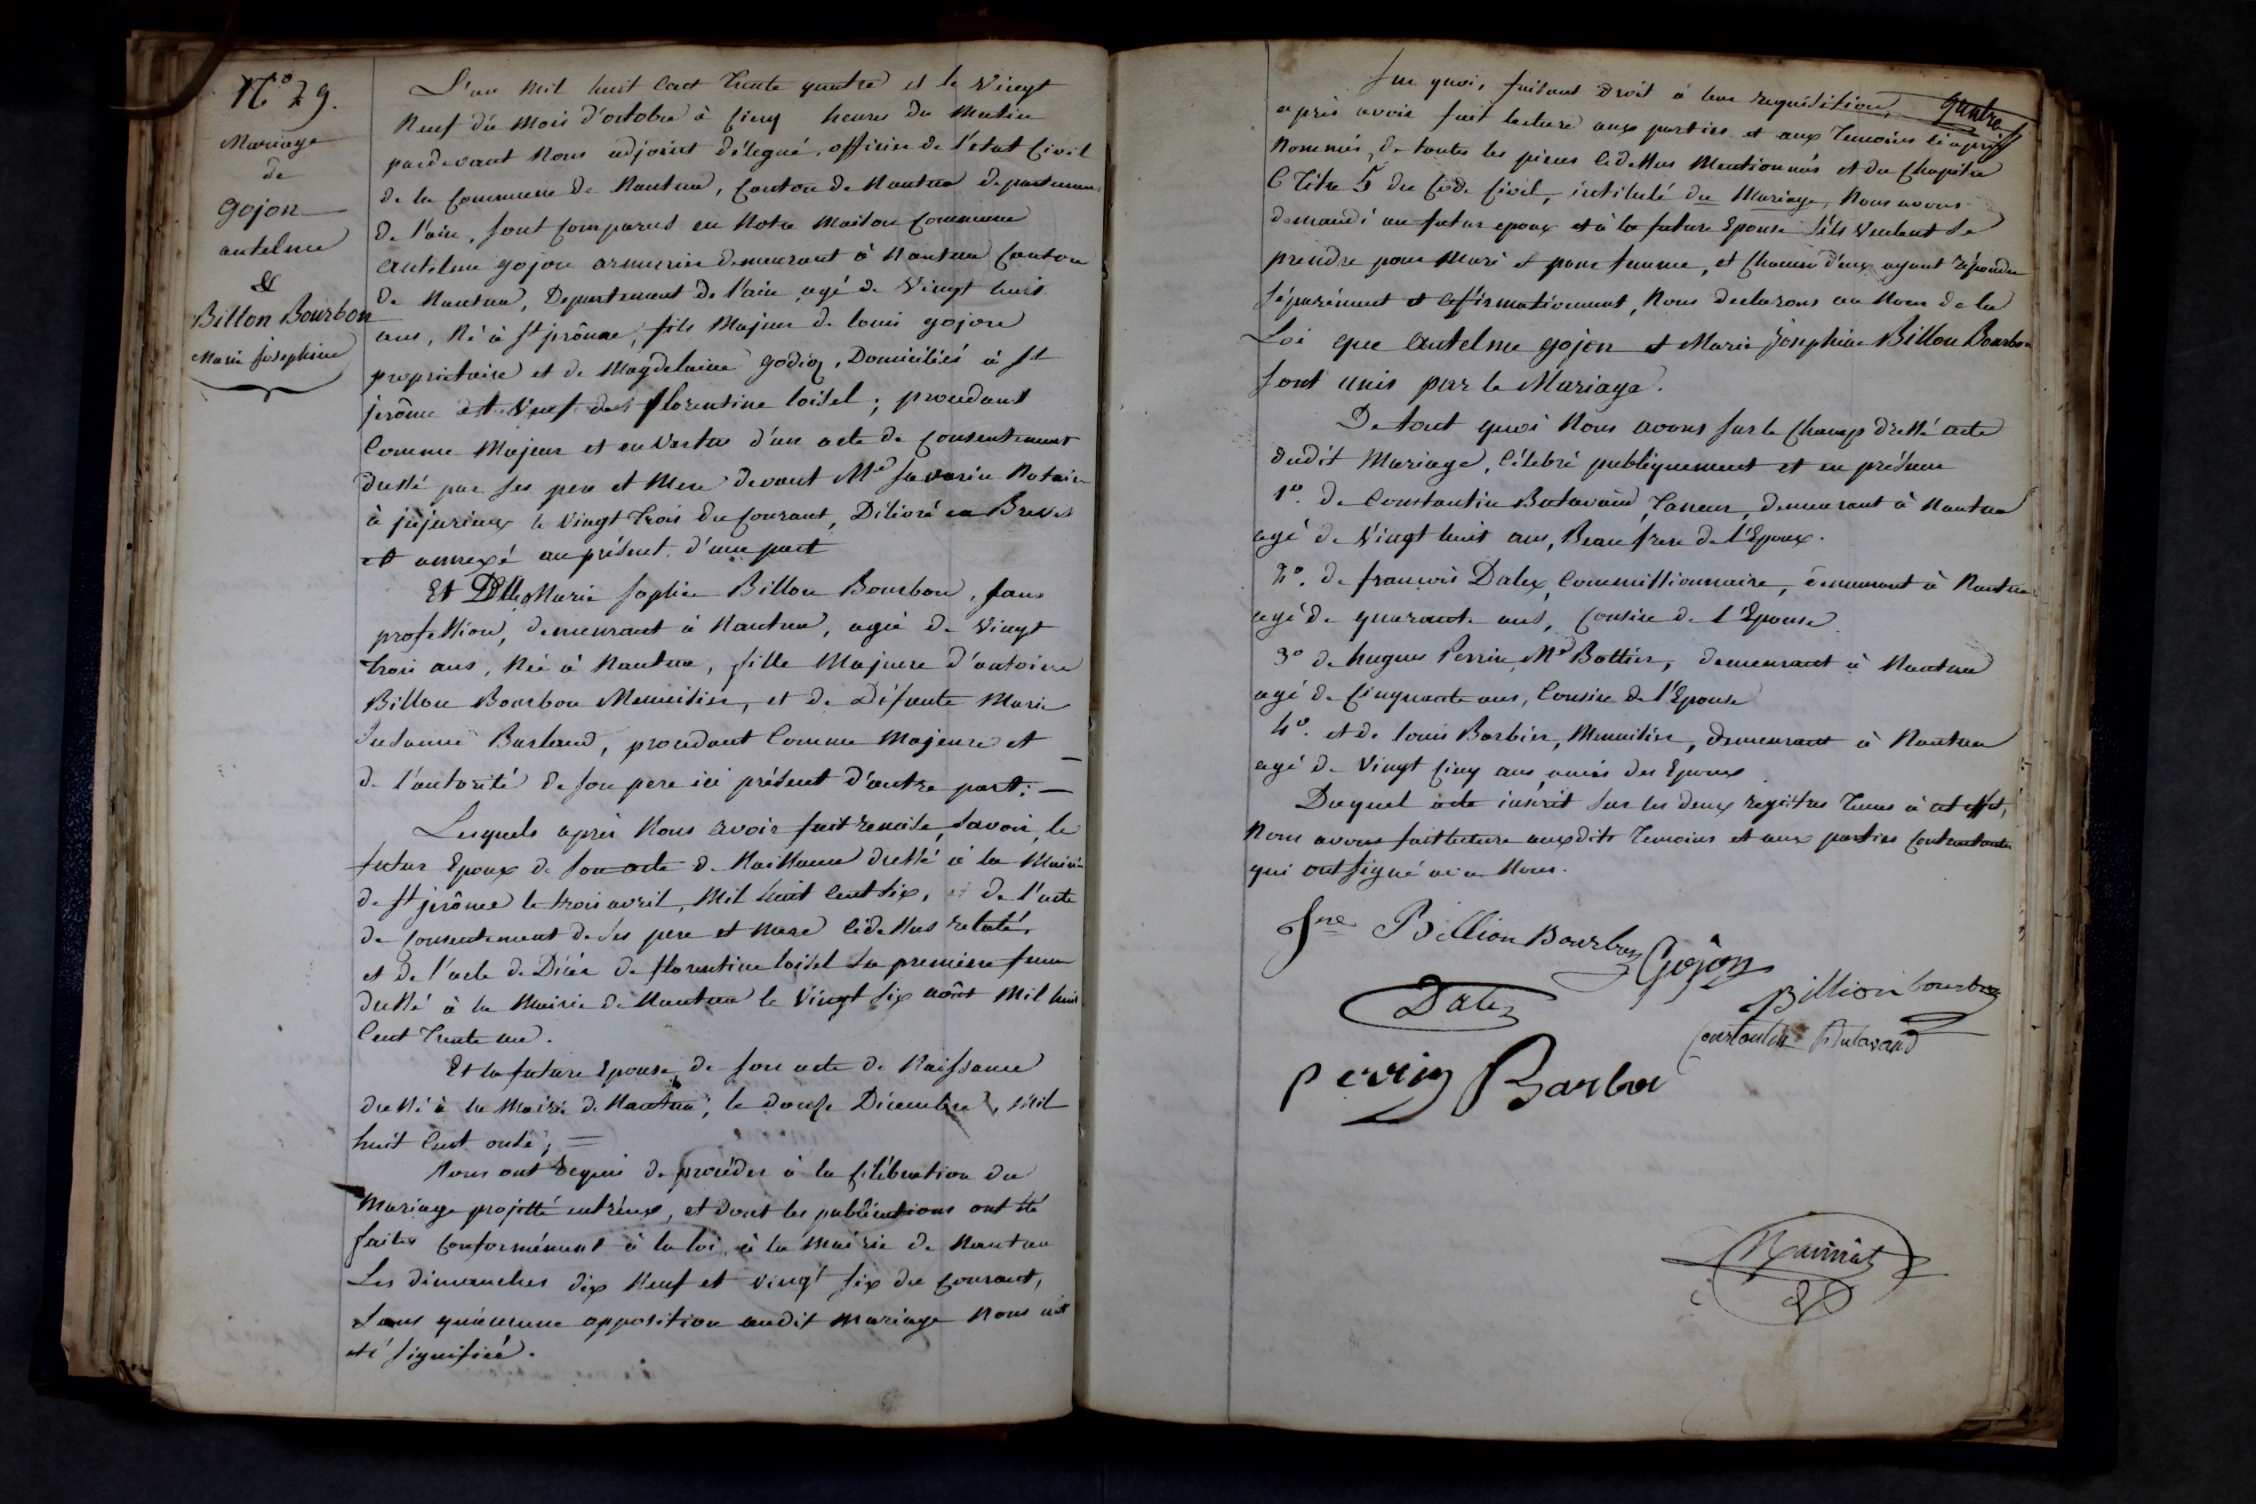 N.º 29.
Mariage
de
gojon
antelme
&
Billon Bourbon
Marie josephine
L'an mil huit cent trente quatre et le vingt
neuf du mois d'octobre à cinq heures du matin
pardevant nous adjoint délégué, officier de l'état civil
de la commune de Nantua, canton de Nantua departement
de l'ain, sont comparus en notre maison commune
antelme gojon armurier demeurant à Nantua canton
de Nantua, Departement de l'ain agé de vingt huit
ans, né à St jérôme, fils majeur de louis gojon
proprietaire et de Magdelaine, Domiciliés à St
jérôme et veuf de florentine loisel ; procedant
comme majeur et en vertu d'un acte de consentement
dressé par ses pere et mere devant Me savarin Notaire
à jujurieux le vingt trois du courant, Délivré en Brevet
et annexé au présent. d'une part
Et Dlle Marie Billon Bourbon, sans
profession, demeurant à Nantua, agée de vingt
trois ans, née à Nantua, fille majeure d'antoine
Billon Bourbon Menuisier, et de Défunte Marie
, procedant comme majeure et
de l'autorité de son pere ici présent d'autre part. —
Lesquels après nous avoir fait remise, savoir, le
futur Epoux de son acte de naissance dressé à la Mairie
de St jérôme le trois avril, mil huit cent six, et de l'acte
de consentement de ses pere et mere cidessus relaté,
et de l'acte de Décès de florentine loisel sa premiere femme
dressé à la mairie de Nantua le vingt six août mil huit
cent trente un.
Et la future Epouse, de son acte de Naissance
dressé à la Mairie de Nantua, le douze Décembre, mil
huit cent onze, =
nous ont requis de procéder à la célébration du
mariage projetté entr'eux, et dont les publications ont été
faites conformément à la loi, à la mairie de Nantua
Les dimanches dix neuf et vingt six du courant,
sans qu'aucune opposition audit mariage nous ait
été signifiée.
quatre
Sur quoi, faisant droit à leur requisition,
après avoir fait lecture aux parties et aux temoins ci après
nommés, de toutes les pieces cidessus mentionnées et du chapitre
6 Titre 5 du Code Civil, intitulé du Mariage, nous avons
demandé au futur epoux et à la future Epouse s'ils veulent se
prendre pour mari et pour femme, et chacun d'eux ayant répondu
séparément et affirmativement, nous declarons au nom de la
Loi que antelme gojon et Marie josephine Billon Bourbon
sont unis par le Mariage.
De tout quoi nous avons sur le champ dressé acte
dudit mariage, célebré publiquement et en présence
1º. de Constantin Butavand, Tanneur, demeurant à Nantua
agé de vingt huit ans, Beau frere de l'Epoux.
2º. de francois Dalex, commissionnaire, demeurant à Nantua
agé de quarante ans, cousin de l'Epouse
3º de hugues Perrin, Md Bottier, demeurant à Nantua
agé de cinquante ans, cousin de l'Epouse
4º. et de louis Barbier, Menuisier, demeurant à Nantua
agé de vingt cinq ans, amis des Epoux
Duquel acte inscrit sur les deux registres tenus à cet effet,
nous avons fait lecture auxdits temoins et aux parties contractantes
qui ont signé avec nous.
Jne Billion Bourbon
Gojon
Dalex
Billion bourbon
Constantin Butavand
Perrin
Barbier